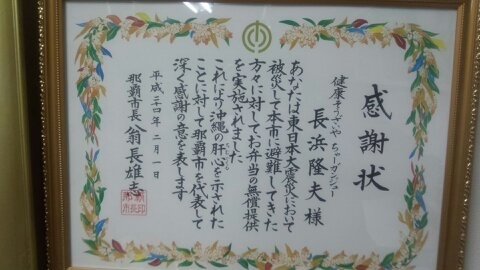 感謝状
健康そうざいや ちゃーガンジュー
長浜隆夫 様
あなたは東日本大震災において
被災して本市に避難してきた
方々に対してお弁当の無償提供
を実施されました
これにより沖縄の肝心を示された
ことに対して那覇市を代表して
深く感謝の意を表します
平成二十四年二月一日
那覇市長 翁長雄志